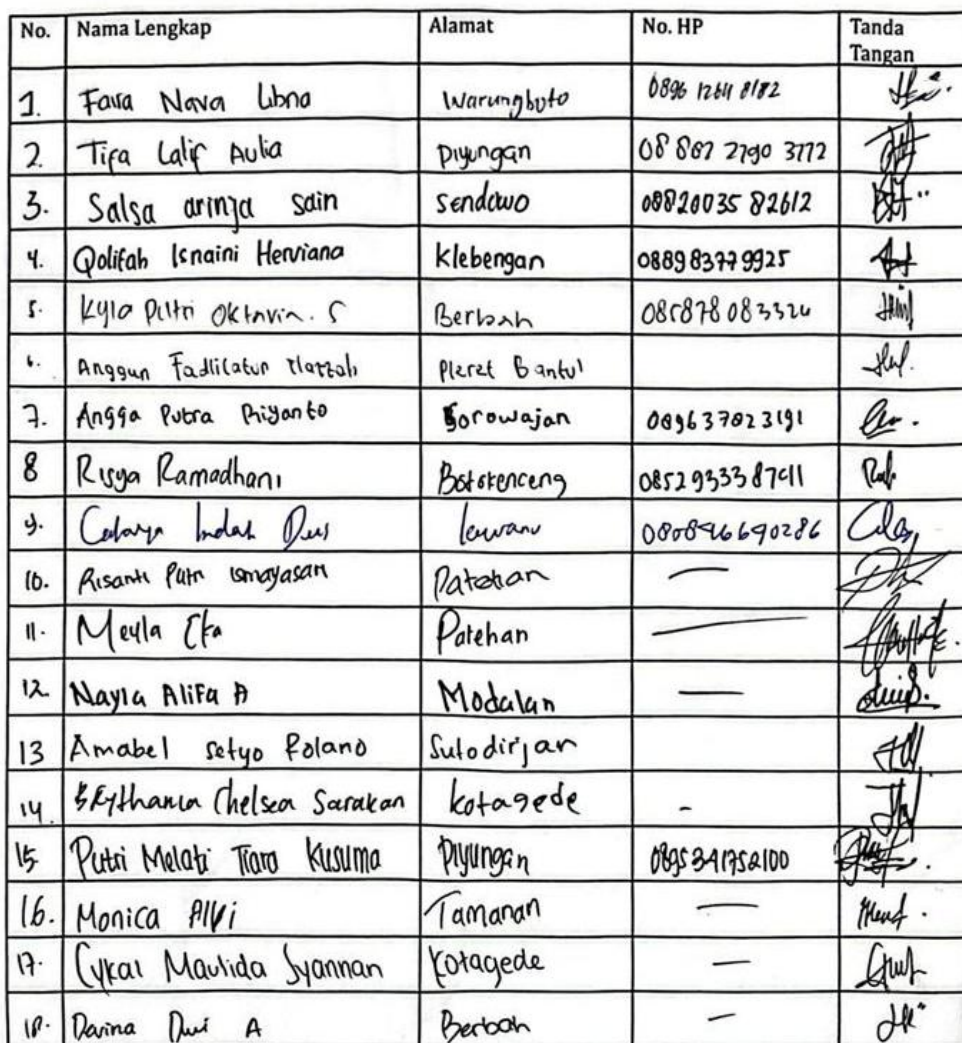 No. Nama Lengkap Alamat No. HP Tanda Tangan
1. Fava Nava Libna Warungboto 0896 1264 8182
2. Tifa Lalif Aulia Piyungan 08 867 2790 3772
3. Salsa arinza sain sendowo 0882003582612
4. Qolifah Isnaini Herviana Klebengan 088983779925
5. Kyla Putri Oktavia. S Berbah 085878083324
6. Anggun Pleret Bantul
7. Angga Putra Priyanto Sorowajan 089637823191
8 Risya Ramadhani Botokenceng
9. Indah 
10. Risanti Putri Ismayasari Patehan —
11. Meyla Eka Patehan —
12. Nayla Alifa A Modalan —
13 Amabel setyo Sutodirjan
14. Chelsea Sarakan kotagede -
15 Putri Melati Tiara Kusuma Piyungan 0895341752100
16. Monica Alvi Tamanan —
17. Maulida Syannan Kotagede —
18. Davina Dwi A Berbah —